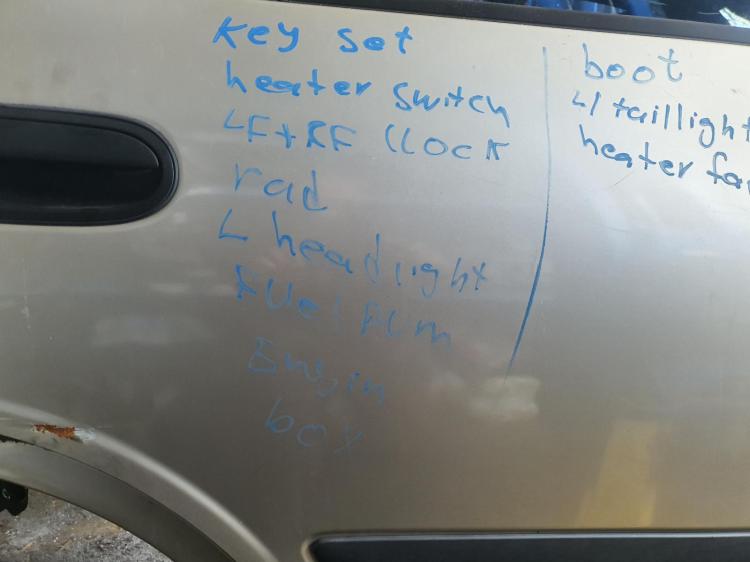 Key set
heater switch
LF+RF CLOCK
rad
L headlight
FUel PUM
Engin
box
boot
L/taillight
heater fan